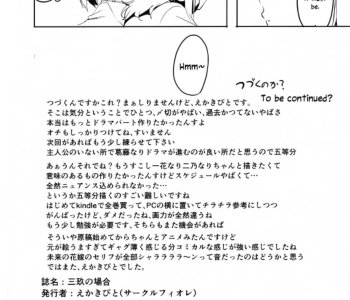 must
be.
Hmm~
つづくのか?
To be continued?
つづくんですかこれ?まぁしりませんけど、えかきびとです。
そこは気分ということでひとつ、〆切がやばい、過去かつてないやばさ
本当はもっとドラマパート作りたかったんすよ
オチもしっかりつけてね、すいません
次回があればもう少し練らせて下さい
主人公のいない所で葛藤なりドラマが進むのが良い所だと思うので五等分
あぁうんそれでね?もうすこし一花なり二乃なりちゃんと描きたくて
意味のあるもの作りたかったんすけどスケジュールやばくて…
全然ニュアンス込められなかった…
というか五等分描くのすごい難しいですね
はじめてkindleで全巻買って、PCの横に置いてチラチラ参考にしつつ
がんばったけど、ダメだったね、画力が全然違うね
もう少し勉強が必要です、そちらもまた機会があれば
そういや原稿始めてからちゃんとアニメみたんですけど
元が絵うますぎてギャグ薄く感じる分コミカルな感じが強い感じでしたね
未来の花嫁のセリフが全部シャララララ～ンって音だったのはどうかと思う
ではまたどこかで、えかきびとでした
誌名:三玖の場合
発行者:えかきびと(サークルフィオレ)